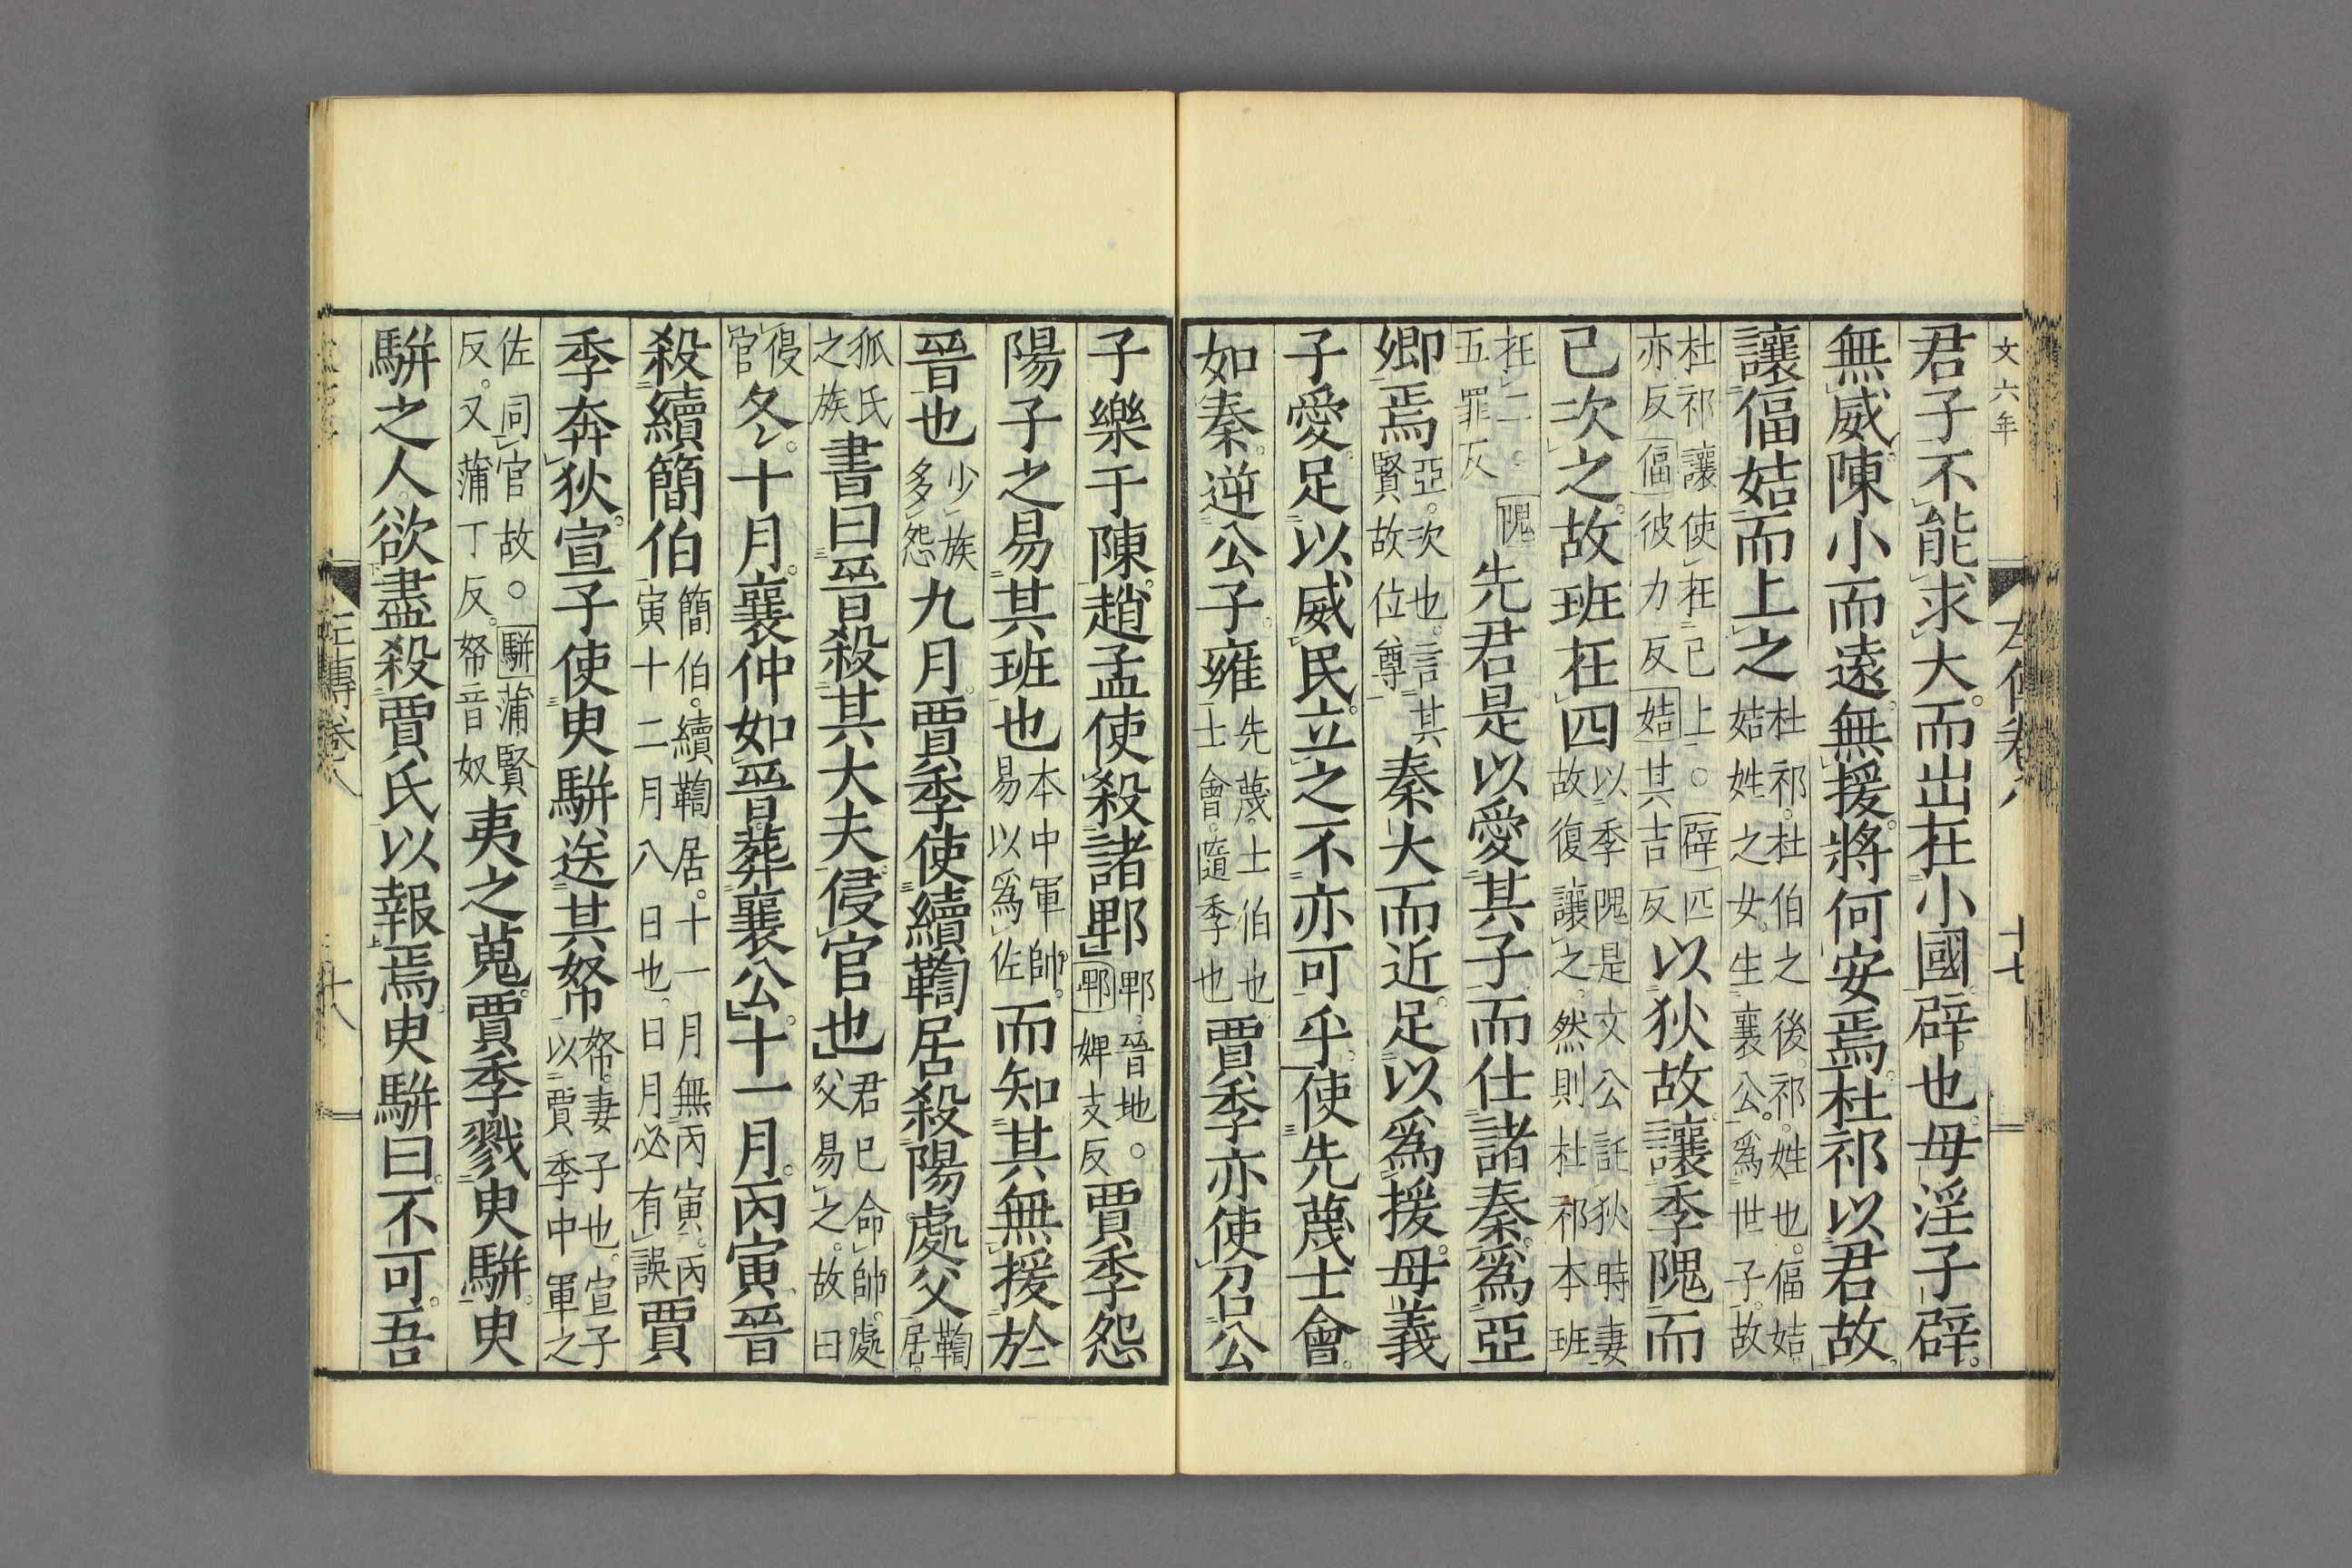 文六年
左傳卷八 十七
君子不能求大而出在小國辟也母淫子辟
無威陳小而遠無援將何安焉杜祁以君故
讓偪姞而上之杜祁杜伯之後祁姓也偪姞姞姓之女生襄公爲世子故
杜祁讓使在己上○辟匹亦反偪彼力反姞其吉反以狄故讓季隗而
己次之故班在四以季隗是文公託狄時妻故復讓之然則杜祁本班
在二○隗五罪反先君是以愛其子而仕諸秦爲亞
卿焉亞次也言其賢故位尊秦大而近足以爲援母義
子愛足以威民立之不亦可乎使先蔑士會
如秦逆公子雍先蔑士伯也士會隨季也賈季亦使召公
子樂于陳趙孟使殺諸郫郫晉地○郫婢支反賈季怨
陽子之易其班也本中軍帥易以爲佐而知其無援於
晉也少族多怨九月賈季使續鞫居殺陽處父鞫居
狐氏之族書曰晉殺其大夫侵官也君已命帥處父易之故曰
侵官冬十月襄仲如晉葬襄公十一月丙寅晉
殺續簡伯簡伯續鞫居十一月無丙寅丙寅十二月八日也日月必有誤賈
季奔狄宣子使臾駢送其帑帑妻子也宣子以賈季中軍之
佐同官故○駢蒲賢反又蒲丁反帑音奴夷之蒐賈季戮臾駢臾
駢之人欲盡殺賈氏以報焉臾駢曰不可吾
左傳卷八 十八